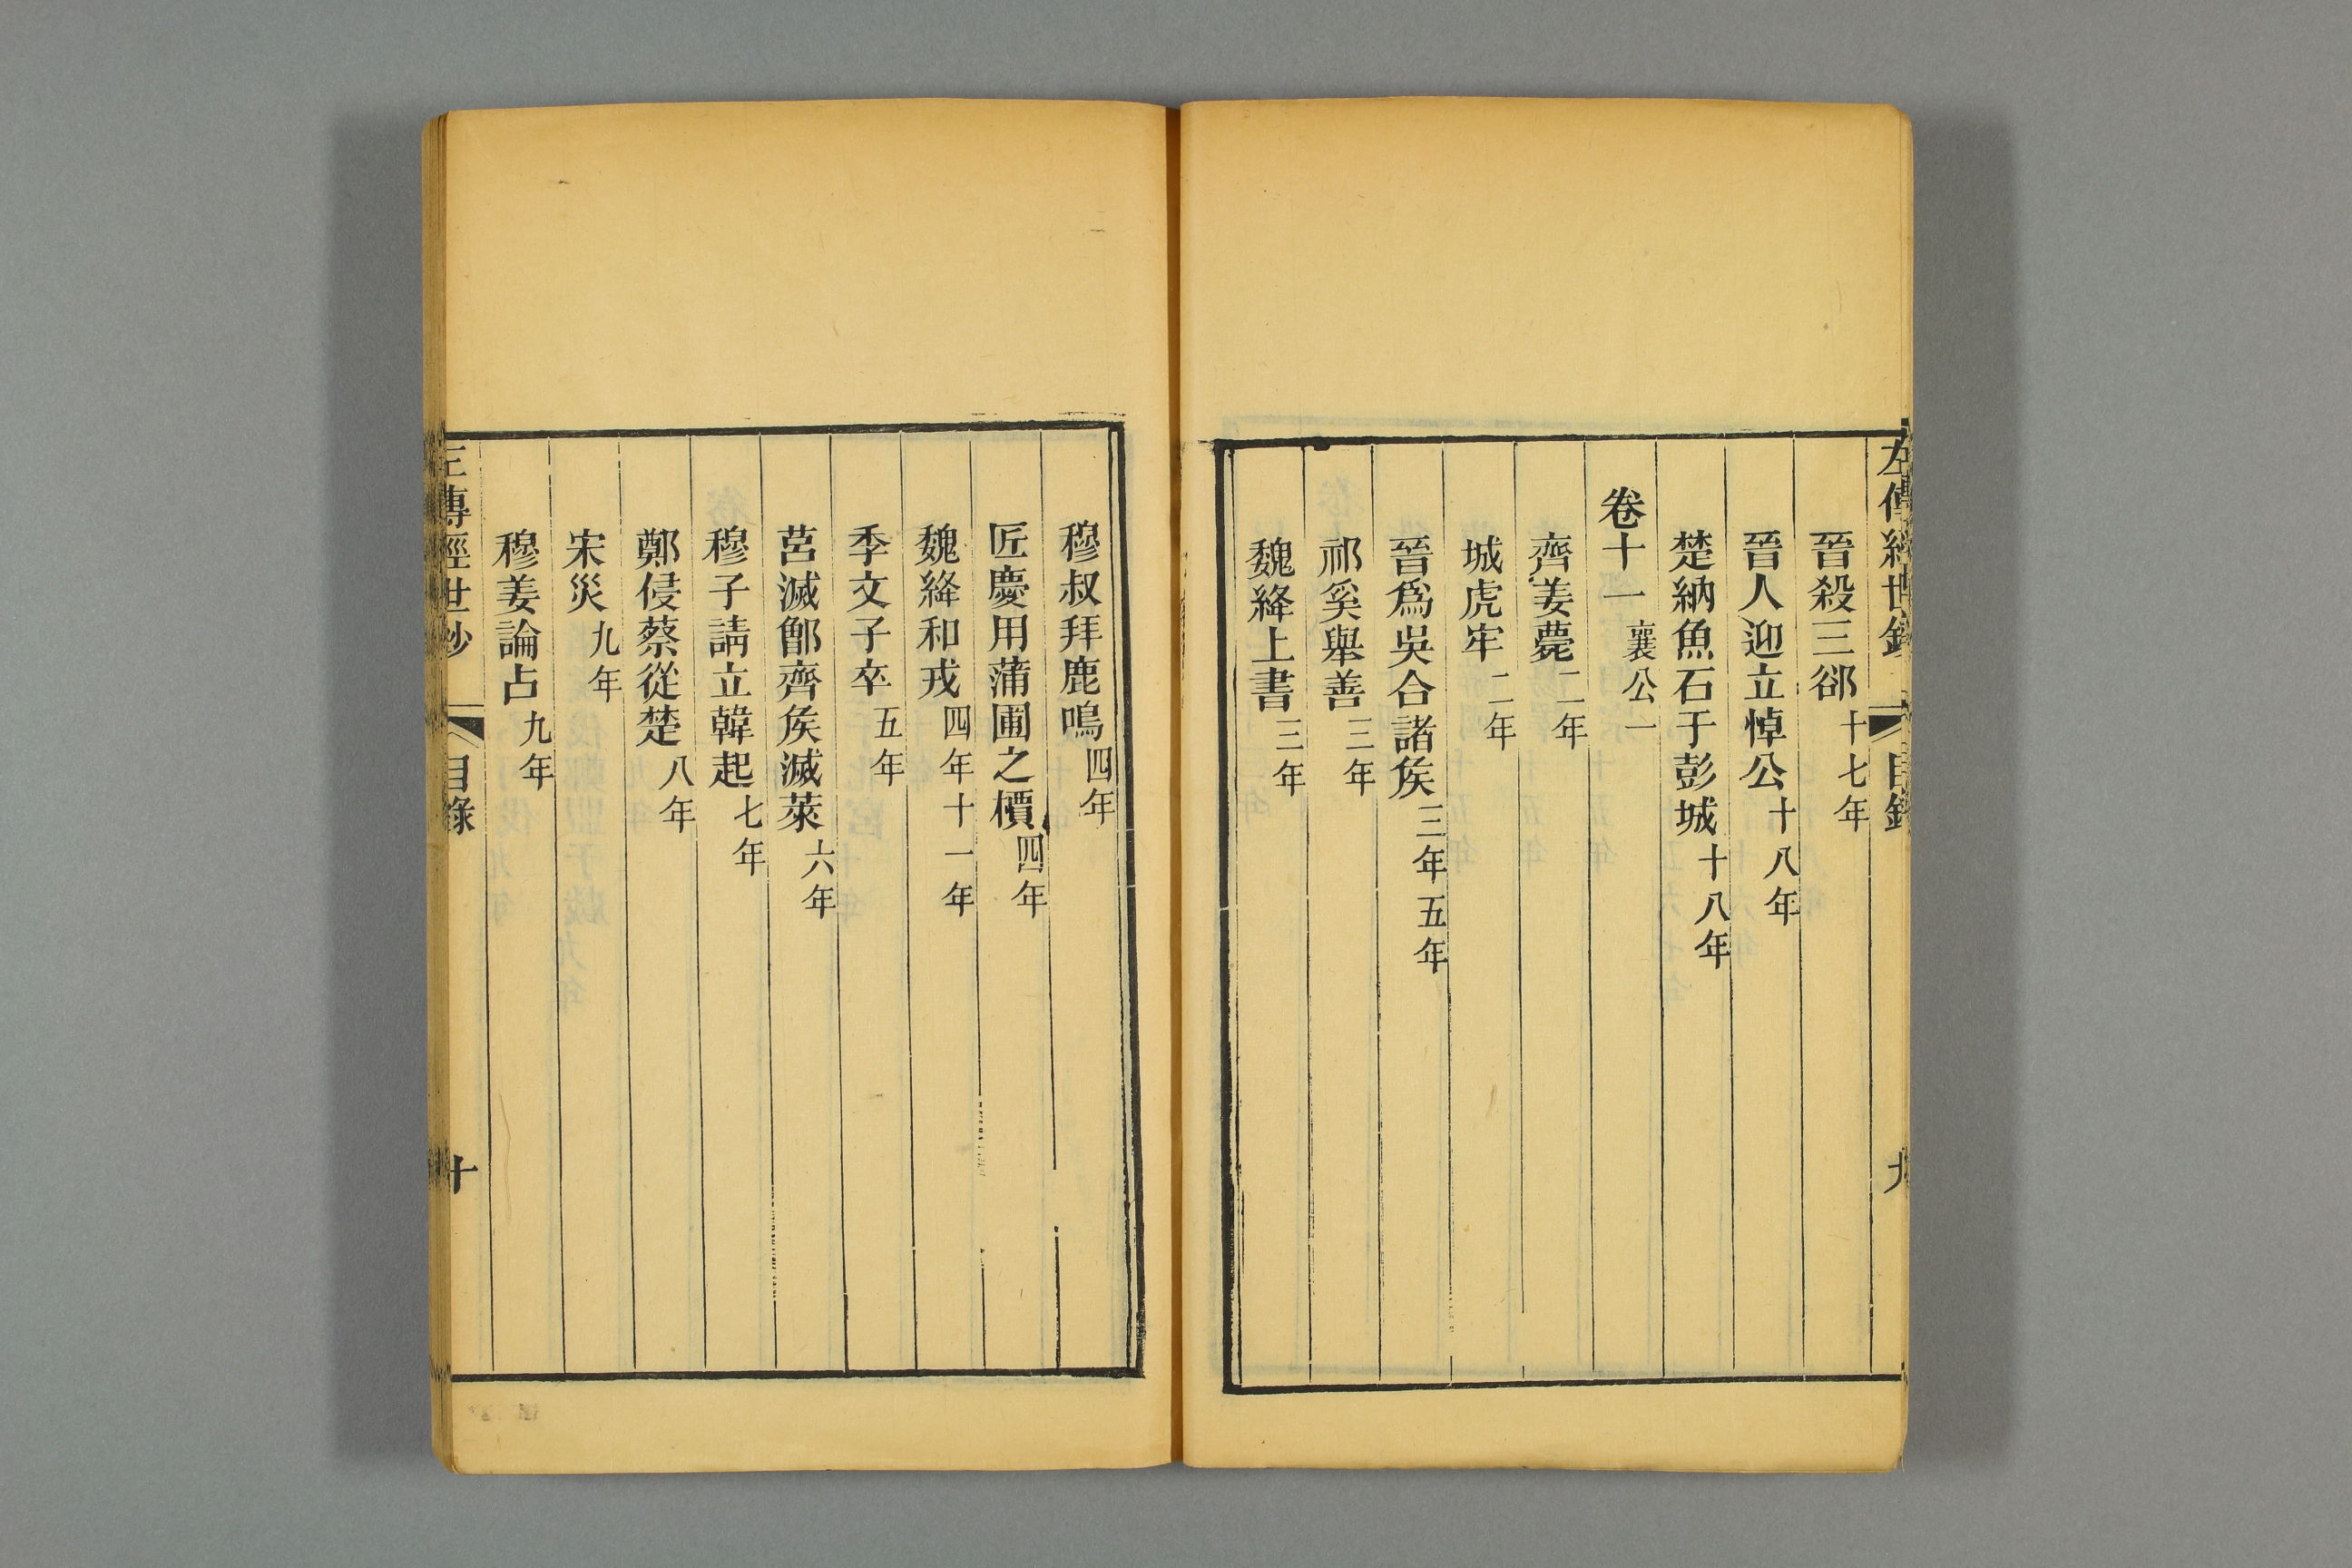 左傳經世鈔 目錄 九
晉殺三郤十七年
晉人迎立悼公十八年
楚納魚石于彭城十八年
卷十一襄公一
齊姜薨二年
城虎牢二年
晉爲吳合諸矦三年五年
祁奚舉善三年
魏絳上書三年
穆叔拜鹿鳴四年
匠慶用蒲圃之檟四年
魏絳和戎四年十一年
季文子卒五年
莒滅鄫齊矦滅萊六年
穆子請立韓起七年
鄭侵蔡從楚八年
宋災九年
穆姜論占九年
左傳經世鈔 目錄 十